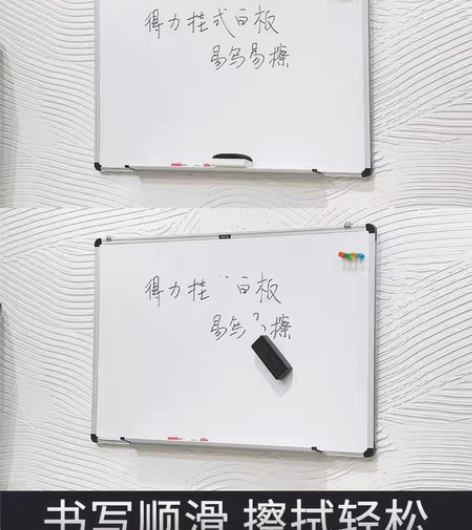 得力挂式白板
易写易擦
得力挂 白板
易写 擦
书写顺滑 擦拭轻松